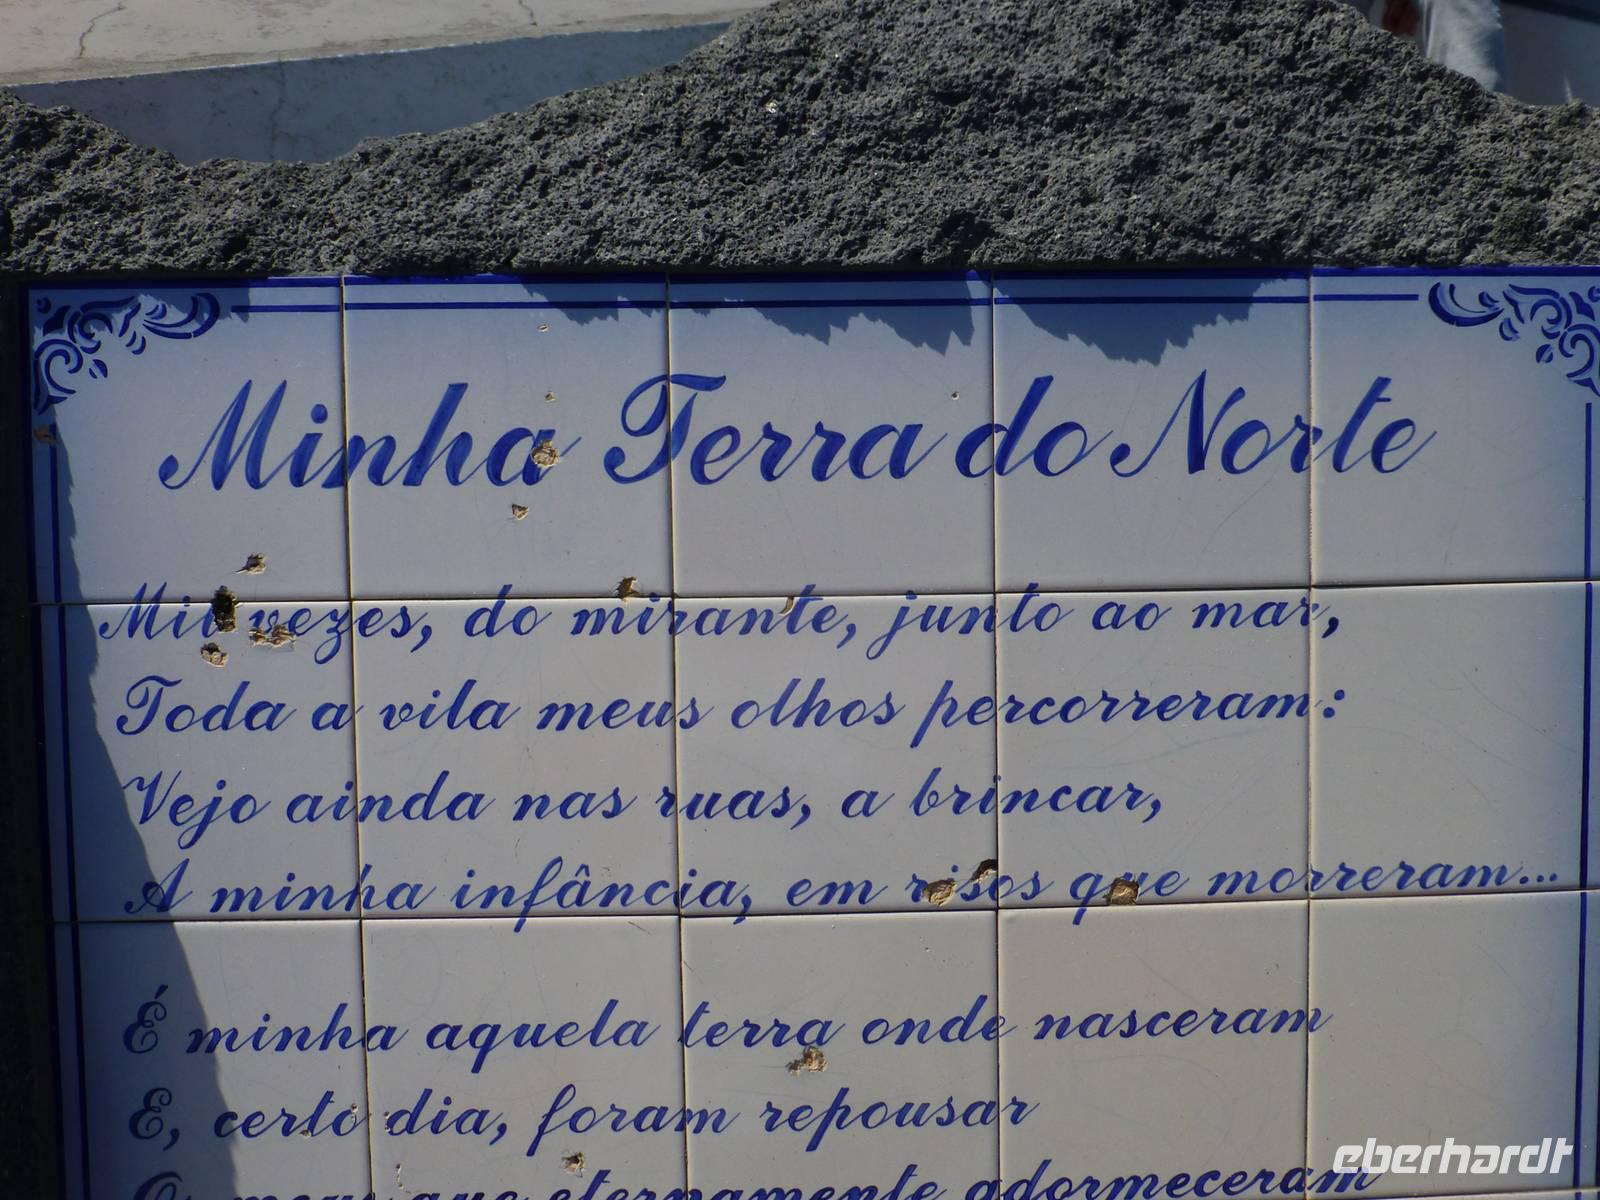 Minha Terra do Norte
Mil vezes, do mirante, junto ao mar,
Toda a vila meus olhos percorreram:
Vejo ainda nas ruas, a brincar,
A minha infância, em risos que morreram...
É minha aquela terra onde nasceram
E, certo dia, foram repousar
Os meus que eternamente adormeceram
eberhardt